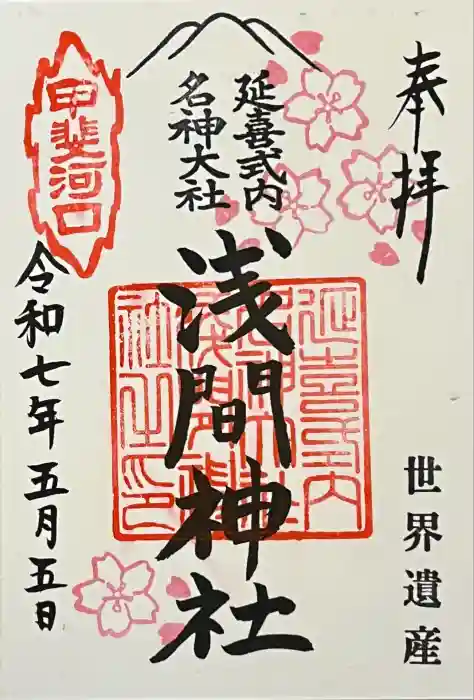 奉拝
世界遺産
延喜式内
名神大社
浅間神社
延喜式内
名神大社
浅間神社
社之印
甲斐河口
令和七年五月五日